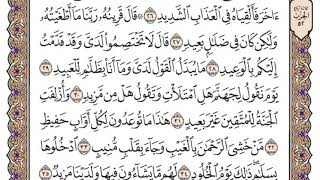 ءَاخَرَ فَأَلْقِيَاهُ فِي ٱلْعَذَابِ ٱلشَّدِيدِ ٢٦ قَالَ قَرِينُهُۥ رَبَّنَا مَآ أَطْغَيْتُهُۥ
وَلَٰكِن كَانَ فِي ضَلَٰلٍۭ بَعِيدٍ ٢٧ قَالَ لَا تَخْتَصِمُواْ لَدَيَّ وَقَدْ قَدَّمْتُ
إِلَيْكُم بِٱلْوَعِيدِ ٢٨ مَا يُبَدَّلُ ٱلْقَوْلُ لَدَيَّ وَمَآ أَنَا۠ بِظَلَّٰمٍ لِّلْعَبِيدِ ٢٩
يَوْمَ نَقُولُ لِجَهَنَّمَ هَلِ ٱمْتَلَأْتِ وَتَقُولُ هَلْ مِن مَّزِيدٍ ٣٠ وَأُزْلِفَتِ
ٱلْجَنَّةُ لِلْمُتَّقِينَ غَيْرَ بَعِيدٍ ٣١ هَٰذَا مَا تُوعَدُونَ لِكُلِّ أَوَّابٍ حَفِيظٍ
٣٢ مَّنْ خَشِيَ ٱلرَّحْمَٰنَ بِٱلْغَيْبِ وَجَآءَ بِقَلْبٍ مُّنِيبٍ ٣٣ ٱدْخُلُوهَا
بِسَلَٰمٍ ذَٰلِكَ يَوْمُ ٱلْخُلُودِ ٣٤ لَهُم مَّا يَشَآءُونَ فِيهَا وَلَدَيْنَا مَزِيدٌ ٣٥
الحزب
٥٢